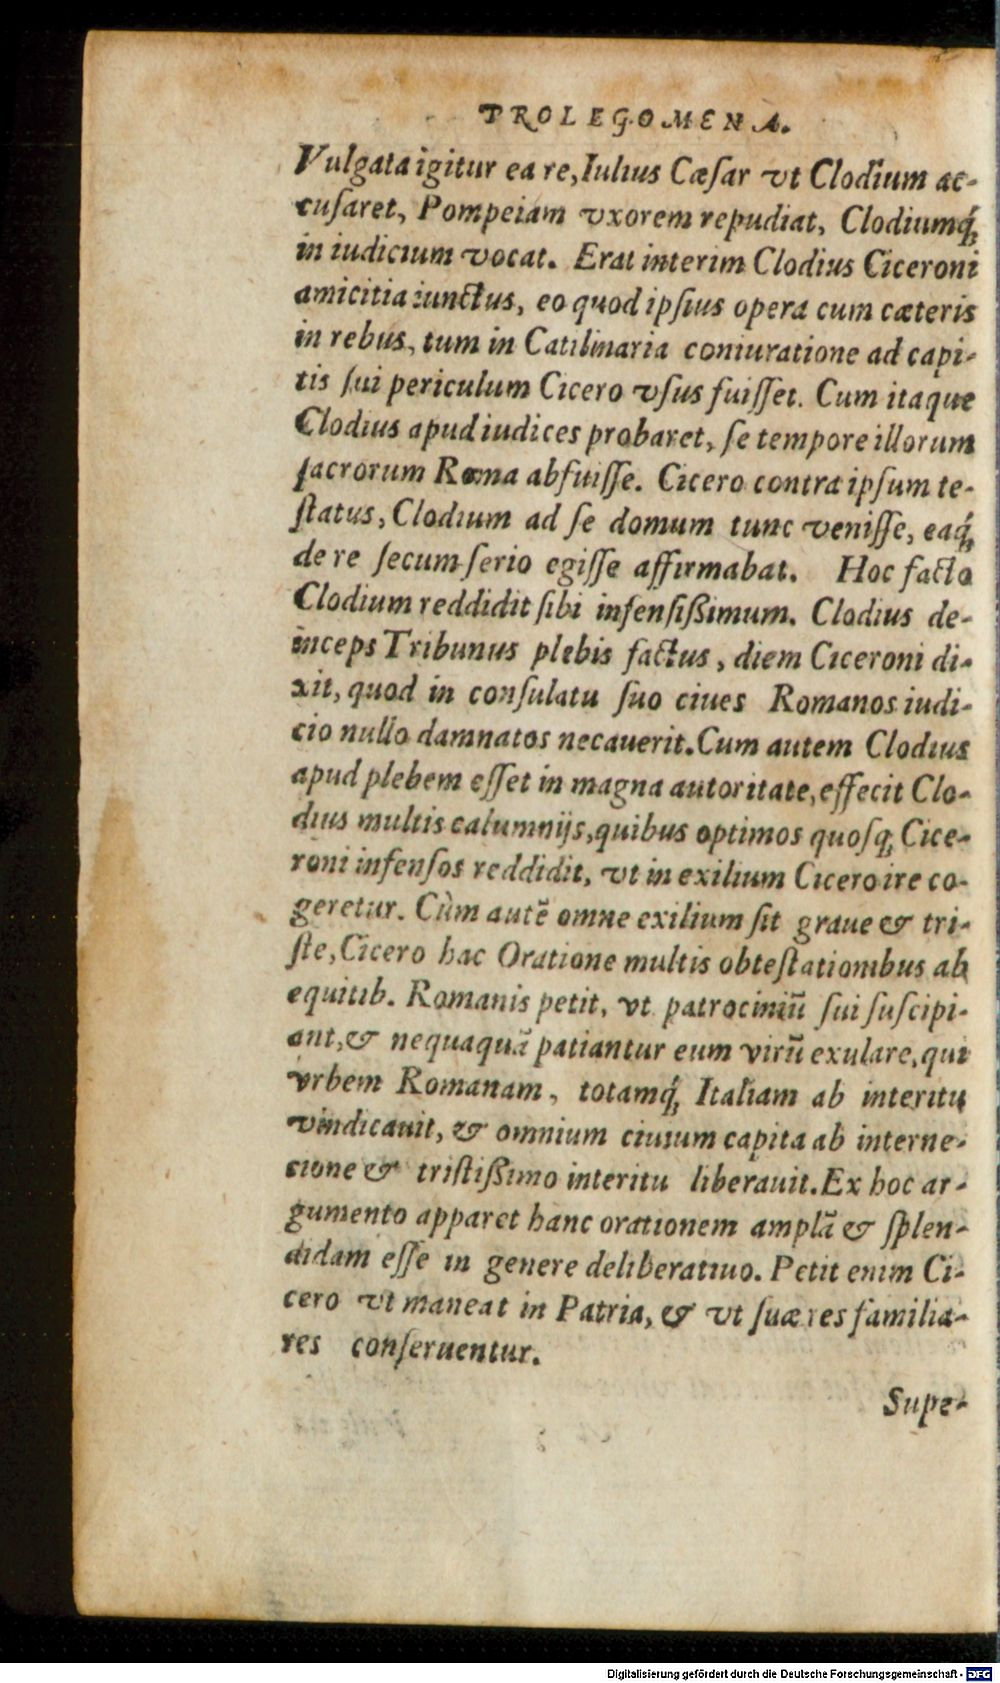 PROLEGOMENA.
Vulgata igitur ea re, Iulius Cæſar vt Clodium ac-
cuſaret, Pompeiam vxorem repudiat, Clodiumq́;
in iudicium vocat. Erat interim Clodius Ciceroni
amicitia iunctus, eo quod ipſius opera cum cæteris
in rebus, tum in Catilinaria coniuratione ad capi-
tis ſui periculum Cicero vſus fuiſſet. Cum itaque
Clodius apud iudices probaret, ſe tempore illorum
ſacrorum Roma abfuiſſe. Cicero contra ipſum te-
ſtatus, Clodium ad ſe domum tunc veniſſe, eaq́;
de re ſecum ſerio egiſſe affirmabat. Hoc facto
Clodium reddidit ſibi infenſiſſimum. Clodius de-
inceps Tribunus plebis factus, diem Ciceroni di-
xit, quod in conſulatu ſuo ciues Romanos iudi-
cio nullo damnatos necauerit. Cum autem Clodius
apud plebem eſſet in magna autoritate, effecit Clo-
dius multis calumnijs, quibus optimos quoſq; Cice-
roni infenſos reddidit, vt in exilium Cicero ire co-
geretur. Cùm autē omne exilium ſit graue & tri-
ſte, Cicero hac Oratione multis obteſtationibus ab
equitib. Romanis petit, vt patrociniū ſui ſuſcipi-
ant, & nequaquā patiantur eum virū exulare, qui
vrbem Romanam, totamq́; Italiam ab interitu
vindicauit, & omnium ciuium capita ab interne-
cione & triſtiſſimo interitu liberauit. Ex hoc ar-
gumento apparet hanc orationem amplā & ſplen-
didam eſſe in genere deliberatiuo. Petit enim Ci-
cero vt maneat in Patria, & vt ſuæ res familia-
res conſeruentur.
Supe-
Digitalisierung gefördert durch die Deutsche Forschungsgemeinschaft - DFG